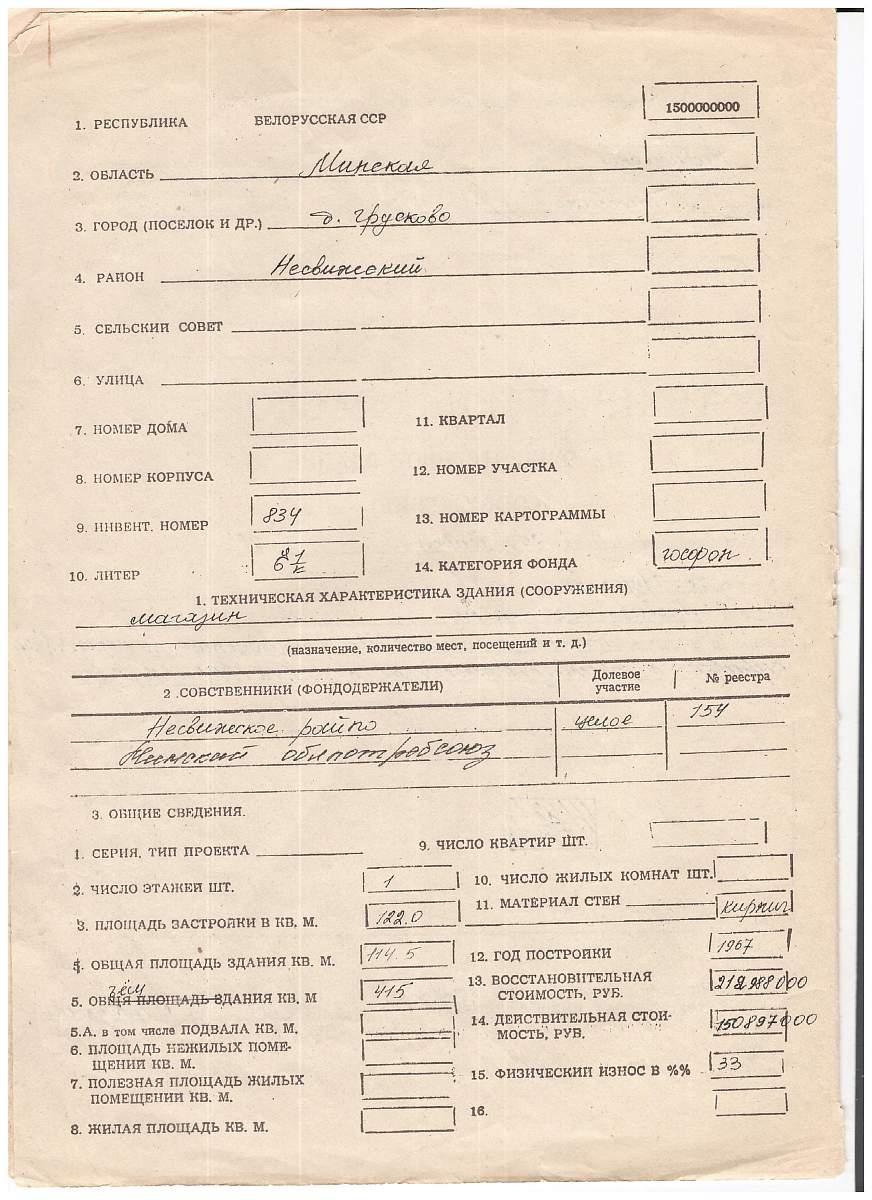 1500000000
1. РЕСПУБЛИКА БЕЛОРУССКАЯ ССР
2. ОБЛАСТЬ Минская
3. ГОРОД (ПОСЕЛОК И ДР.) д. Грусково
4. РАЙОН Несвижский
5. СЕЛЬСКИЙ СОВЕТ
6. УЛИЦА
7. НОМЕР ДОМА 11. КВАРТАЛ
8. НОМЕР КОРПУСА 12. НОМЕР УЧАСТКА
9. ИНВЕНТ. НОМЕР 834 13. НОМЕР КАРТОГРАММЫ
10. ЛИТЕР 14. КАТЕГОРИЯ ФОНДА
1. ТЕХНИЧЕСКАЯ ХАРАКТЕРИСТИКА ЗДАНИЯ (СООРУЖЕНИЯ)
магазин
(назначение, количество мест, посещений и т. д.)
2. СОБСТВЕННИКИ (ФОНДОДЕРЖАТЕЛИ) Долевое участие № реестра
Несвижское райпо целое 154
Минский облпотребсоюз
3. ОБЩИЕ СВЕДЕНИЯ.
1. СЕРИЯ, ТИП ПРОЕКТА 9. ЧИСЛО КВАРТИР ШТ.
2. ЧИСЛО ЭТАЖЕЙ ШТ. 1 10. ЧИСЛО ЖИЛЫХ КОМНАТ ШТ.
3. ПЛОЩАДЬ ЗАСТРОЙКИ В КВ. М. 122.0 11. МАТЕРИАЛ СТЕН кирпич
4. ОБЩАЯ ПЛОЩАДЬ ЗДАНИЯ КВ. М. 114.5 12. ГОД ПОСТРОЙКИ 1967
5. ОБЩАЯ ПЛОЩАДЬ ЗДАНИЯ КВ. М 415 13. ВОССТАНОВИТЕЛЬНАЯ СТОИМОСТЬ, РУБ. 212988000
5.А. в том числе ПОДВАЛА КВ. М. 14. ДЕЙСТВИТЕЛЬНАЯ СТОИ-
МОСТЬ, РУБ. 150897000
6. ПЛОЩАДЬ НЕЖИЛЫХ ПОМЕ-
ЩЕНИЙ КВ. М. 15. ФИЗИЧЕСКИЙ ИЗНОС В %% 33
7. ПОЛЕЗНАЯ ПЛОЩАДЬ ЖИЛЫХ
ПОМЕЩЕНИЙ КВ. М. 16.
8. ЖИЛАЯ ПЛОЩАДЬ КВ. М.